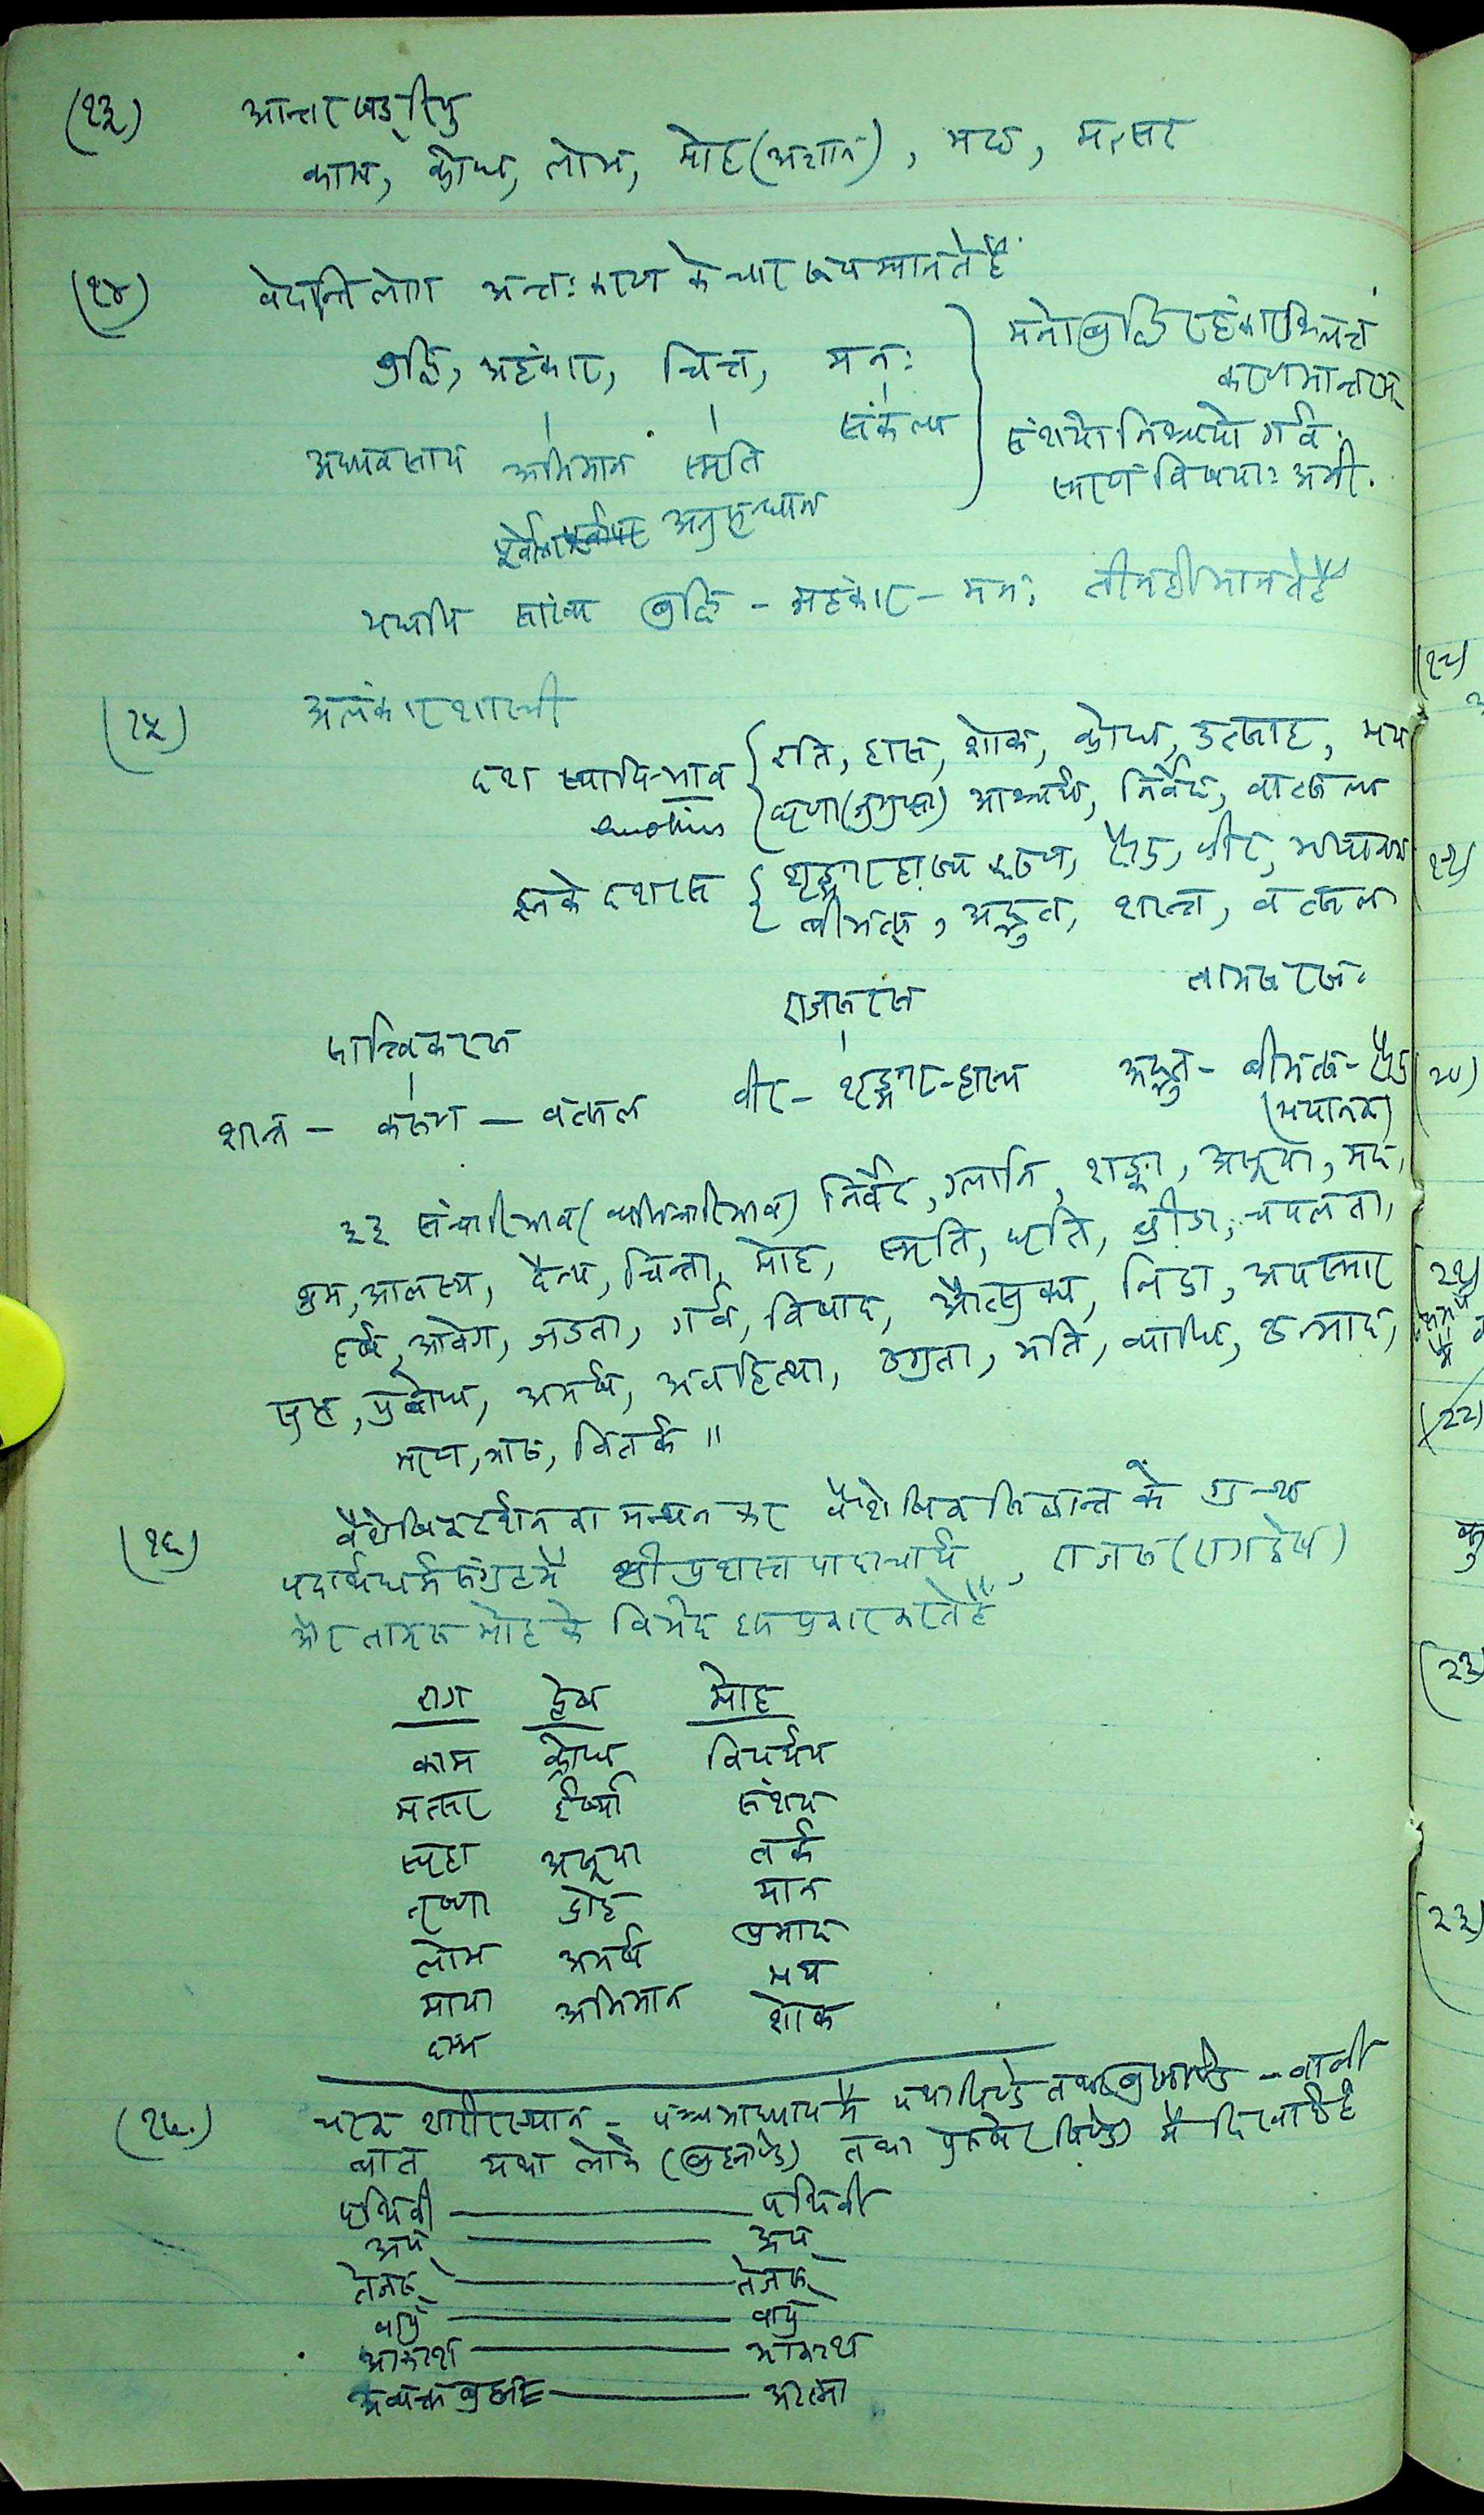 (१३) आन्तर षड्रिपु
काम, क्रोध, लोभ, मोह (अज्ञान), मद, मत्सर
(१४) वेदान्ति लोग अन्तःकरण के चार रूप मानते हैं
बुद्धि, अहंकार, चित्त, मनः
अध्यवसाय अभिमान स्मृति संकल्प
अनुसन्धान
मनोबुद्धिरहंकारश्चित्तं
करणमान्तरम्
संशयो निश्चयो गर्वः
स्मरणं विषयाः अमी.
यद्यपि सांख्य बुद्धि - अहंकार - मनः तीन ही मानते हैं
(१५) अलंकार शास्त्री
दश स्थायि-भाव { रति, हास, शोक, क्रोध, उत्साह, भय
emotions { घृणा (जुगुप्सा) आश्चर्य, निर्वेद, वात्सल्य
इनके दश रस { शृङ्गार हास्य करुण, रौद्र, वीर, भयानक
बीभत्स, अद्भुत, शान्त, वत्सल
सात्त्विक रस राजस रस तामस रस
शान्त - करुण - वत्सल वीर - शृङ्गार - हास्य अद्भुत - बीभत्स - रौद्र
(भयानक)
३३ संचारिभाव (व्यभिचारिभाव) निर्वेद, ग्लानि, शङ्का, असूया, मद,
श्रम, आलस्य, दैन्य, चिन्ता, मोह, स्मृति, धृति, व्रीडा, चपलता,
हर्ष, आवेग, जडता, गर्व, विषाद, औत्सुक्य, निद्रा, अपस्मार
सुप्त, प्रबोध, अमर्ष, अवहित्था, उग्रता, मति, व्याधि, उन्माद,
मरण, त्रास, वितर्क ॥
(१६) वैशेषिकदर्शन का मन्थन कर वैशेषिक सिद्धान्त के ग्रन्थ
पदार्थधर्मसंग्रह में श्री प्रशस्तपादाचार्य, राजस (रागद्वेष)
और तामस मोह के विभेद इस प्रकार करते हैं
राग द्वेष मोह
काम क्रोध विपर्यय
मत्सर ईर्ष्या संशय
स्पृहा असूया तर्क
तृष्णा द्रोह मान
लोभ अमर्ष प्रमाद
माया अभिमान भय
दम्भ शोक
(१७.) चरक शारीरस्थान - पंचमाध्याय में यथा पिण्डे तथा ब्रह्माण्डे - वाली
बात यथा लोके (ब्रह्माण्डे) तथा पुरुषे (पिण्डे) में दिखाई है
पृथिवी — पृथिवी
अप् — अप्
तेजस् — तेजस्
वायु — वायु
आकाश — आकाश
अव्यक्त ब्रह्म — आत्मा
(१८)
(१९)
(२०)
(२१)
(२२)
(२३)
(२३)